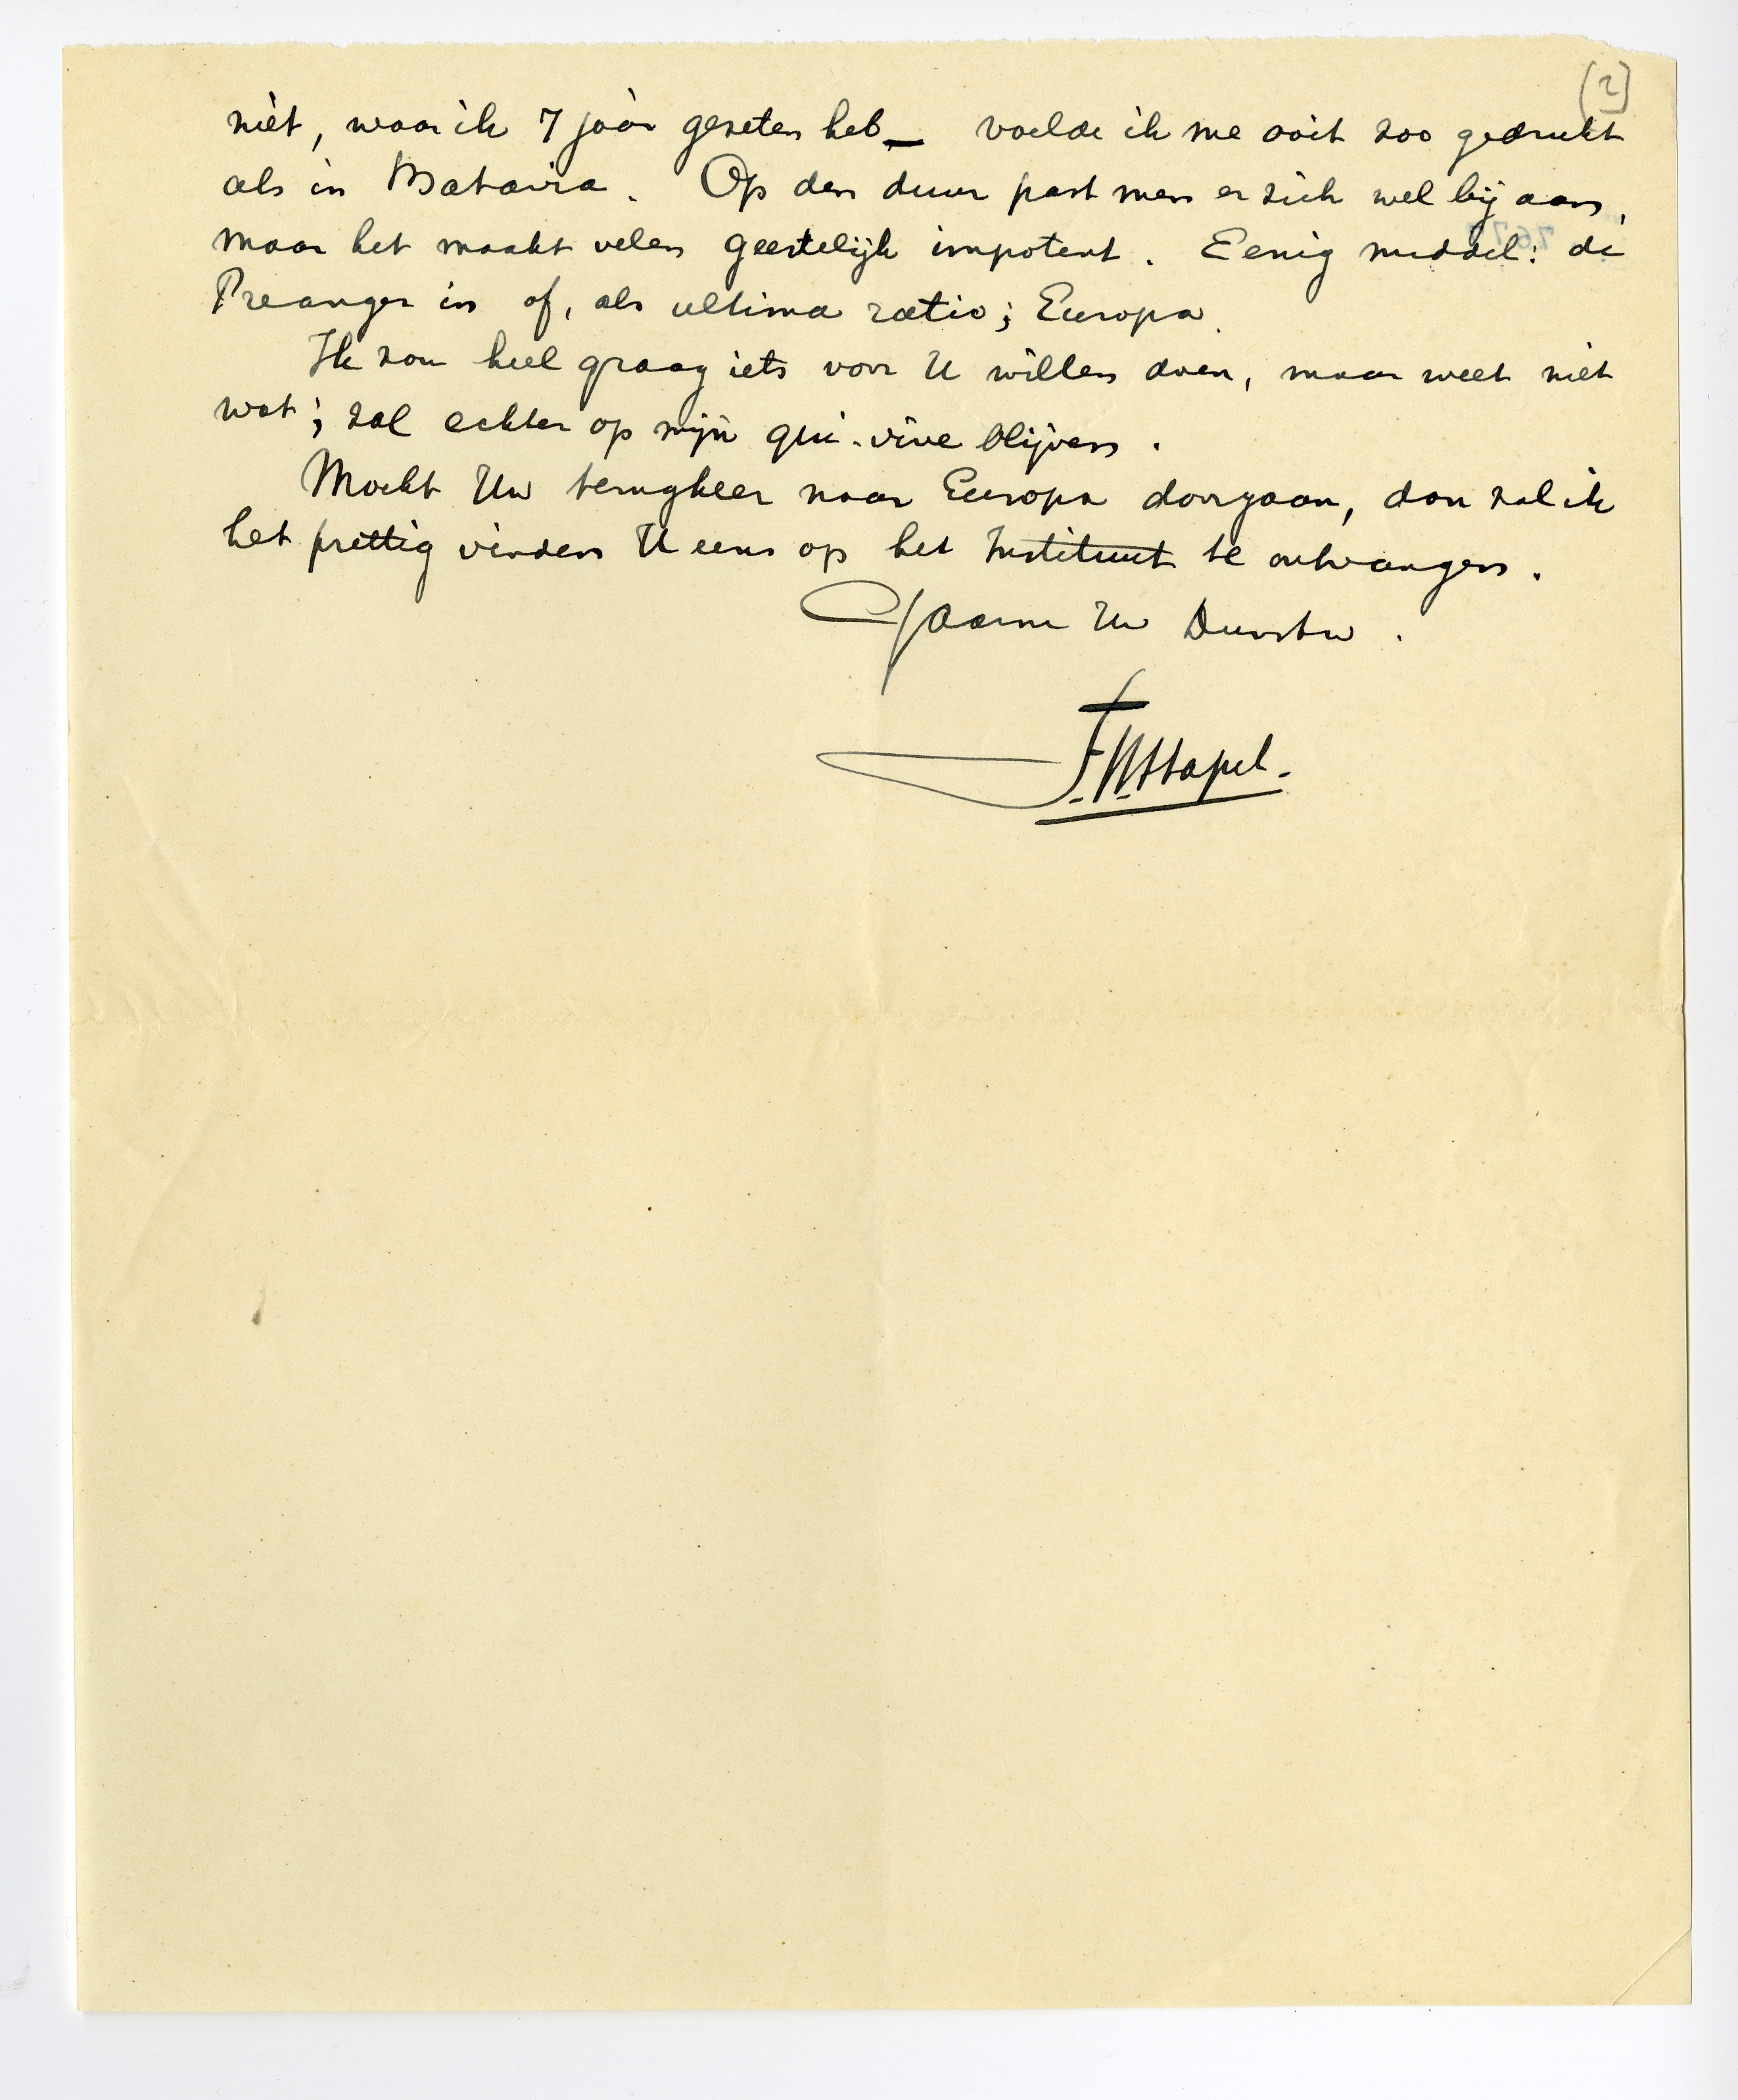 [2]
niet, waar ik 7 jaar gezeten heb — voelde ik me ooit zoo gedrukt
als in Batavia. Op den duur past men er zich wel bij aan,
maar het maakt velen geestelijk impotent. Eenig middel: de
Preanger in of, als ultima ratio; Europa.
Ik zou heel graag iets voor U willen doen, maar weet niet
wat; zal echter op mijn qui-vive blijven.
Mocht Uw terugkeer naar Europa doorgaan, dan zal ik
het prettig vinden U eens op het Instituut te ontvangen.
Gaarne Uw Dienstw.
F.W. Stapel.